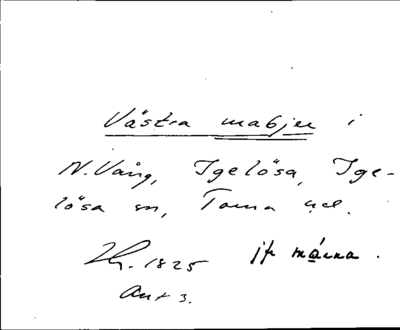 Västra mabjer i
N. Vång, Igelösa, Ige-
lösa sn, Torna hd.
1825 jfr månna.
Ant 3.